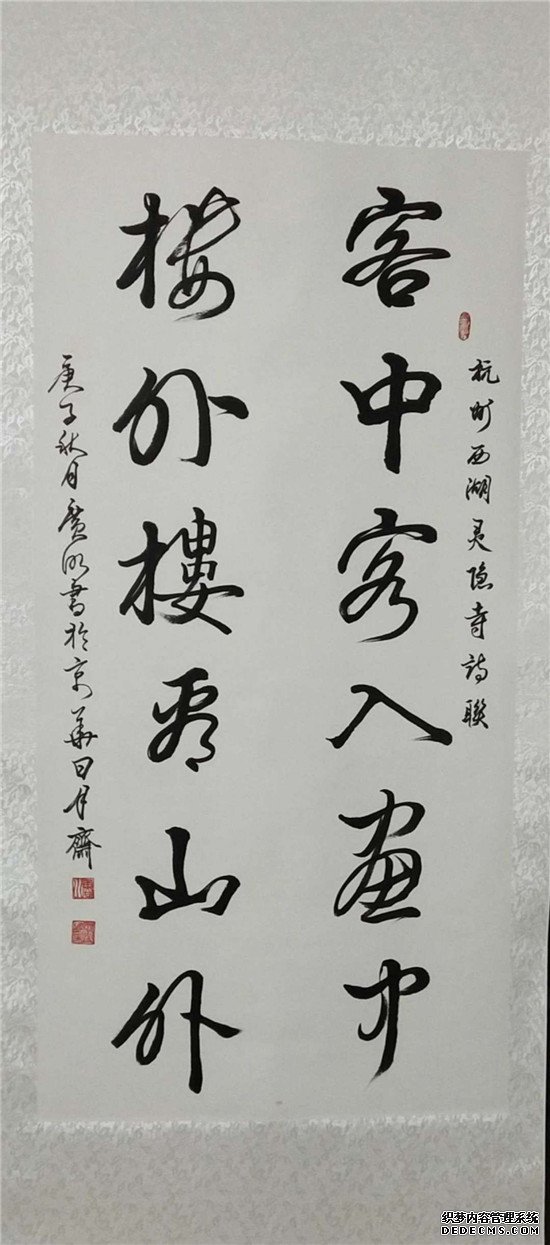 杭州西湖灵隐寺诗联
客中客入画中
楼外樓看山外
庚子秋月廣汲書於京華日月齋
织梦内容管理系统
DEDECMS.COM